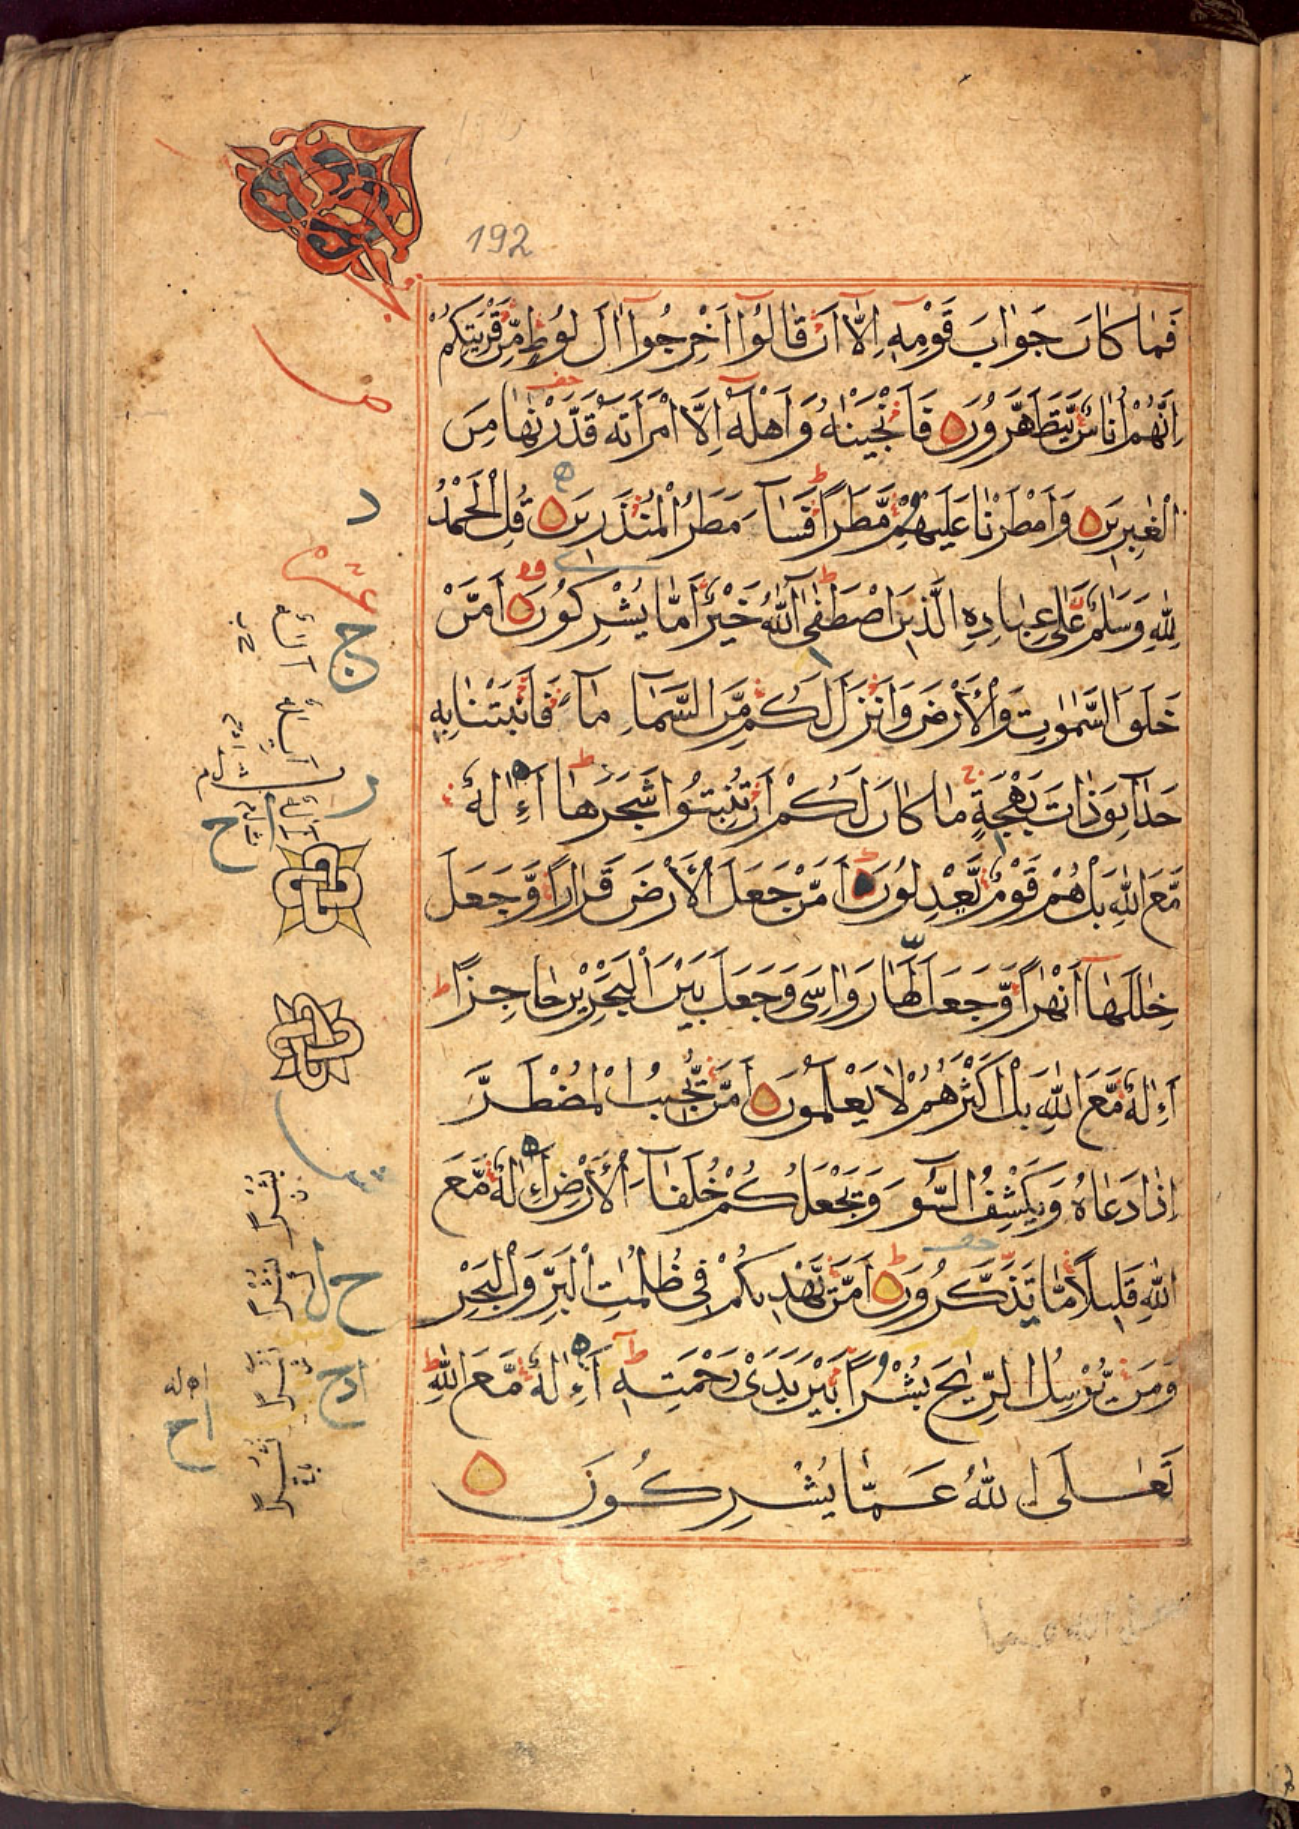 192
فَمَا كَانَ جَوَابَ قَوْمِهِ اِلَّا اَنْ قَالُوا اَخْرِجُوا اٰلَ لُوْطٍ مِّنْ قَرْيَتِكُمْ
اِنَّهُمْ اُنَاسٌ يَّتَطَهَّرُوْنَ فَاَنْجَيْنٰهُ وَاَهْلَهٗ اِلَّا امْرَاَتَهٗ قَدَّرْنٰهَا مِنَ
الْغٰبِرِيْنَ وَاَمْطَرْنَا عَلَيْهِمْ مَّطَرًا فَسَآءَ مَطَرُ الْمُنْذَرِيْنَ قُلِ الْحَمْدُ
لِلّٰهِ وَسَلٰمٌ عَلٰى عِبَادِهِ الَّذِيْنَ اصْطَفٰى اٰللّٰهُ خَيْرٌ اَمَّا يُشْرِكُوْنَ اَمَّنْ
خَلَقَ السَّمٰوٰتِ وَالْاَرْضَ وَاَنْزَلَ لَكُمْ مِّنَ السَّمَآءِ مَآءً فَاَنْبَتْنَا بِهٖ
حَدَآئِقَ ذَاتَ بَهْجَةٍ مَا كَانَ لَكُمْ اَنْ تُنْبِتُوْا شَجَرَهَا ءَاِلٰهٌ
مَّعَ اللّٰهِ بَلْ هُمْ قَوْمٌ يَّعْدِلُوْنَ اَمَّنْ جَعَلَ الْاَرْضَ قَرَارًا وَّجَعَلَ
خِلٰلَهَا اَنْهٰرًا وَّجَعَلَ لَهَا رَوَاسِىَ وَجَعَلَ بَيْنَ الْبَحْرَيْنِ حَاجِزًا
ءَاِلٰهٌ مَّعَ اللّٰهِ بَلْ اَكْثَرُهُمْ لَا يَعْلَمُوْنَ اَمَّنْ يُّجِيْبُ الْمُضْطَرَّ
اِذَا دَعَاهُ وَيَكْشِفُ السُّوْءَ وَيَجْعَلُكُمْ خُلَفَآءَ الْاَرْضِ ءَاِلٰهٌ مَّعَ
اللّٰهِ قَلِيْلًا مَّا تَذَكَّرُوْنَ اَمَّنْ يَّهْدِيْكُمْ فِى ظُلُمٰتِ الْبَرِّ وَالْبَحْرِ
وَمَنْ يُّرْسِلُ الرِّيٰحَ بُشْرًا بَيْنَ يَدَىْ رَحْمَتِهٖ ءَاِلٰهٌ مَّعَ اللّٰهِ
تَعٰلَى اللّٰهُ عَمَّا يُشْرِكُوْنَ